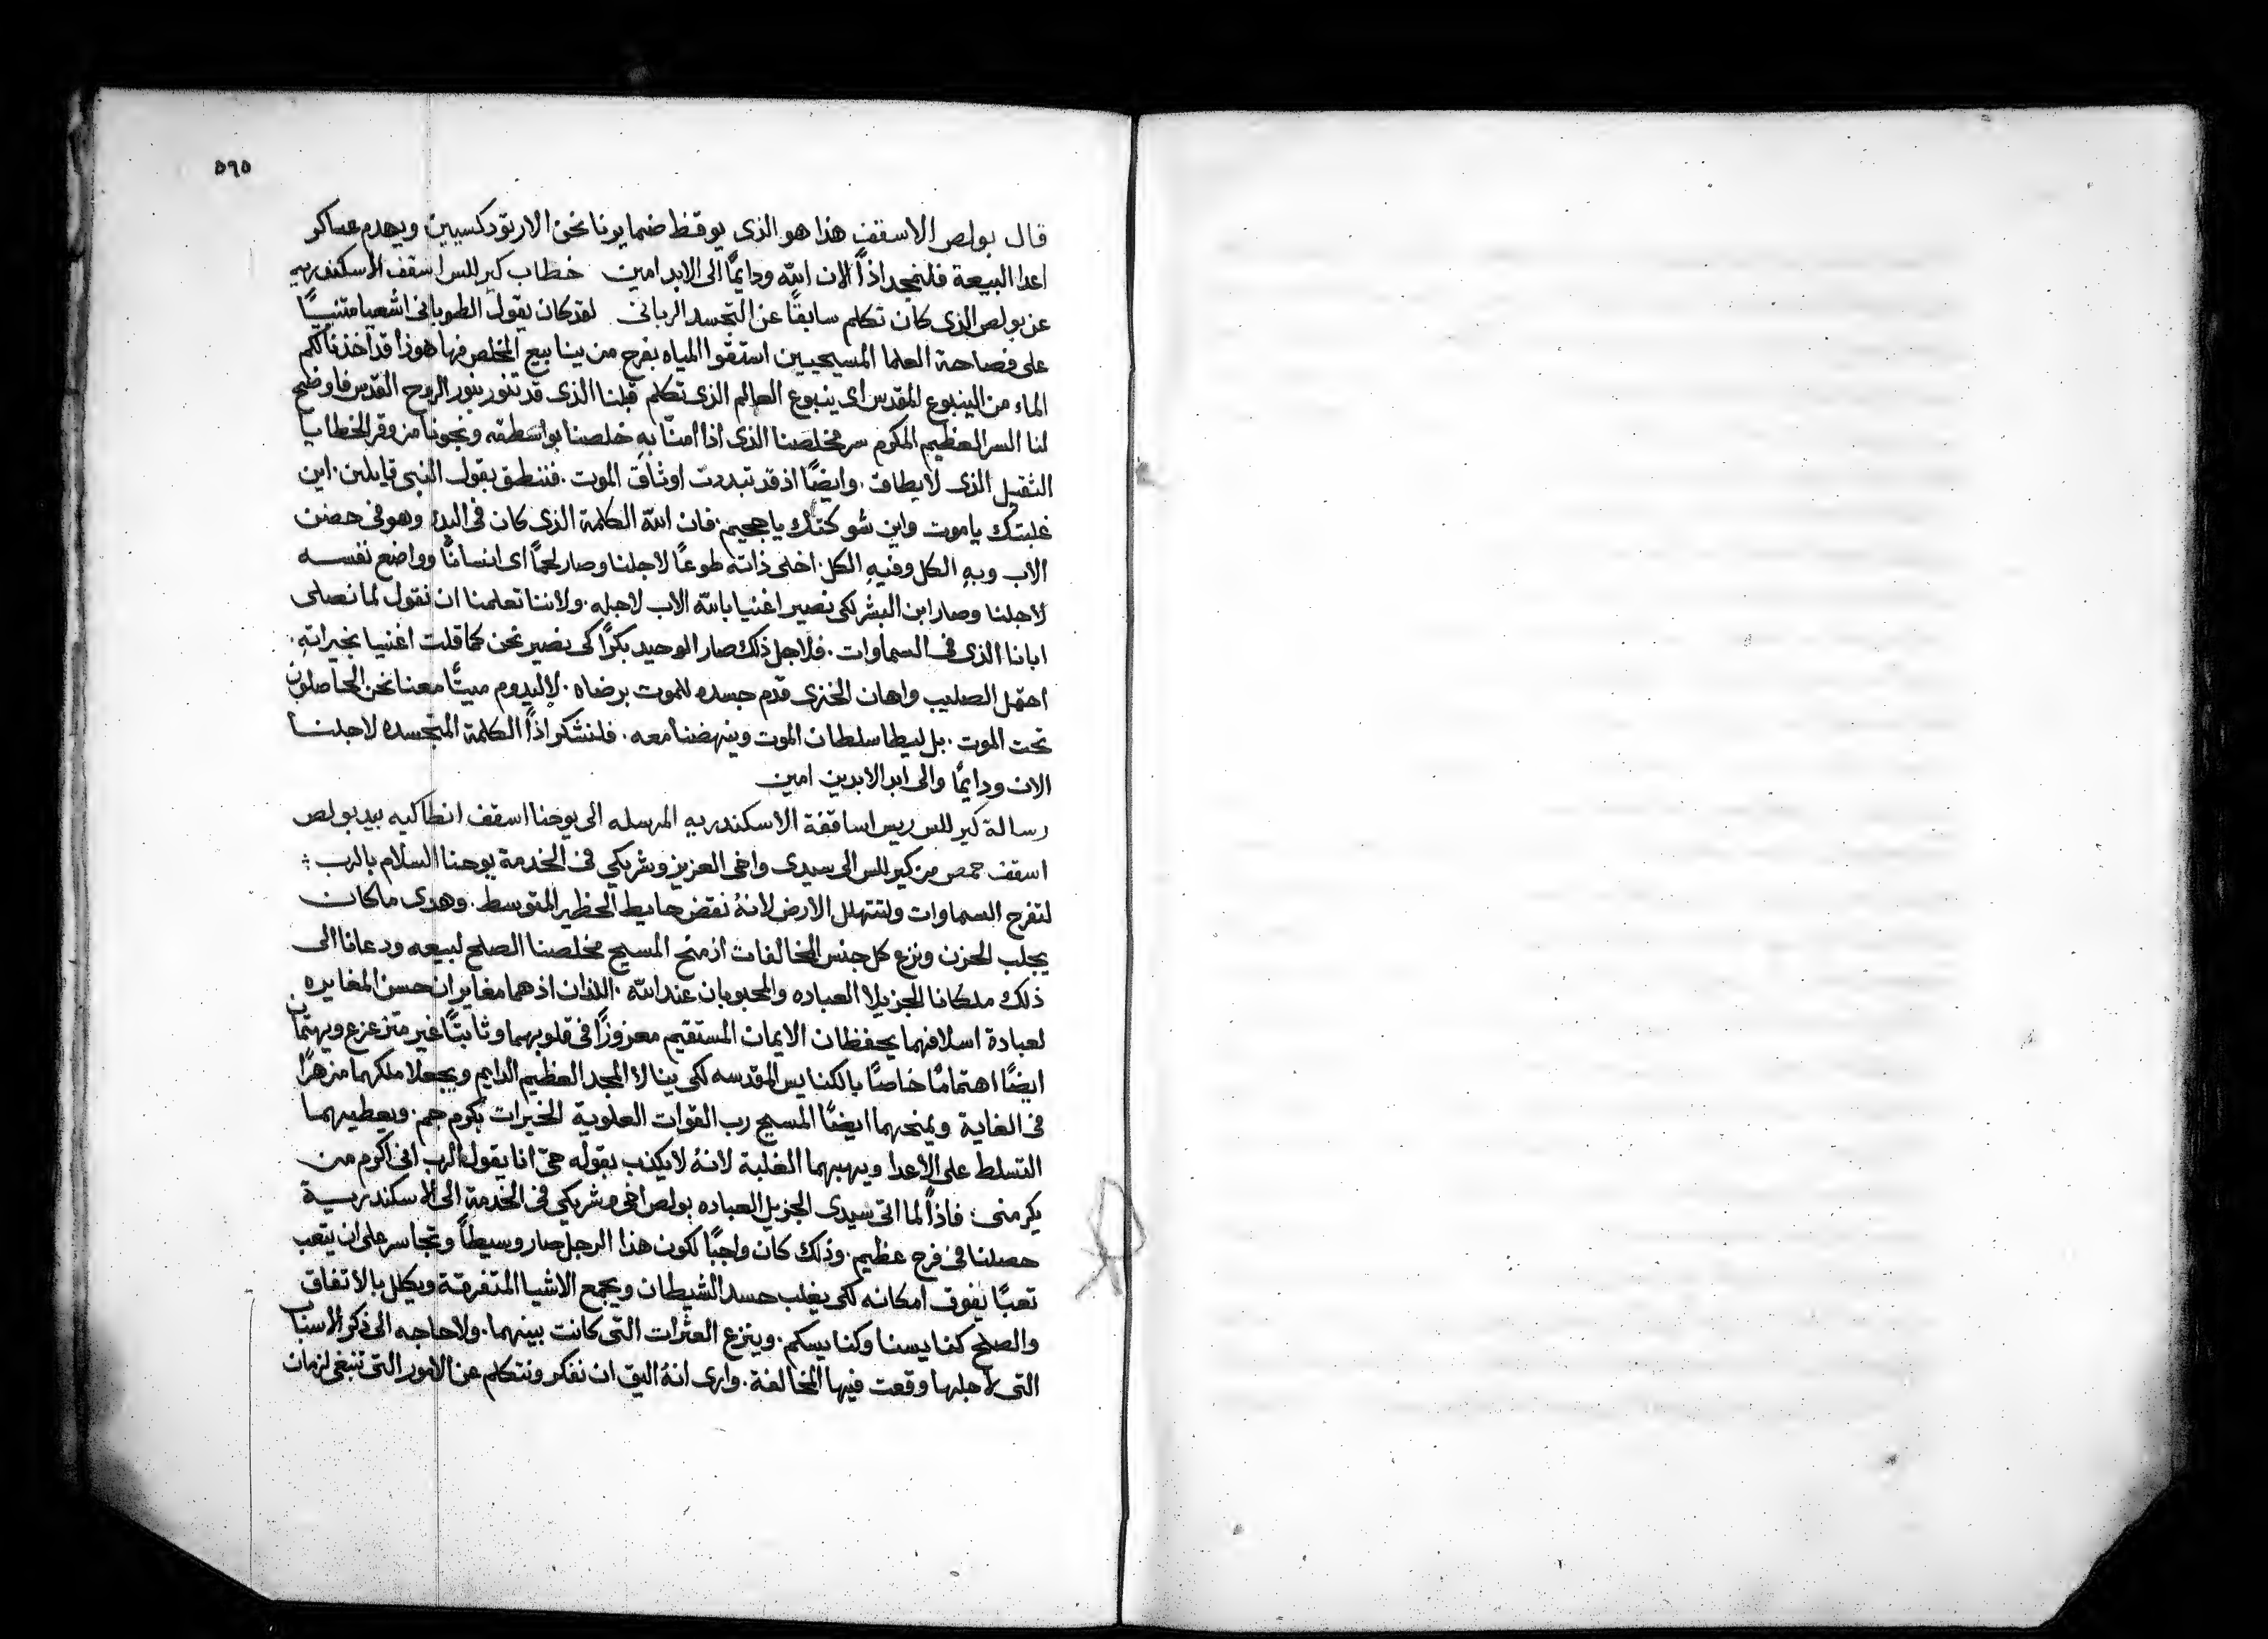 ٥٦٥
قال بولص الاسقف هذا هو الذى يوقظ ضمايرنا نحن الارتودكسيين ويهدم عساكر
اعدا البيعة فلنمجد اذاً الان الله ودايمًا الى الابد امين خطاب كيرللس اسقف الاسكندريه
عن بولص الذى كان تكلم سابقًا عن التجسد الربانى لقد كان يقول الطوبانى اشعيا متنبيًا
على فصاحة العلما المسيحيين استقوا المياه بفرح من ينابيع المخلص فها هوذا قد اخذنا لكم
الماء من الينبوع المقدس اى ينبوع العالم الذى تكلم قبلنا الذى قد تنور بنور الروح القدس فاوضح
لنا السر العظيم المكرم سر مخلصنا الذى اذا امنّا بهِ خلصنا بواسطته ونجونا من وقر الخطايا
الثقيل الذى لا يطاق. وايضًا اذ قد تبددت اوثاق الموت. فننطق بقول النبى قايلين. اين
غلبتك ياموت واين شوكتك ياجحيم. فان الله الكلمة الذى كان فى البدء وهو فى حضن
الاب وبهِ الكل وفيهِ الكل. اخلى ذاته طوعًا لاجلنا وصار لحمًا اى انسانًا وواضع نفسه
لاجلنا وصار ابن البشر لكى نصير اغنيا بالله الاب لاجله. ولاننا تعلمنا ان نقول لما نصلى
ابانا الذى فى السماوات. فلاجل ذلك صار الوحيد بكرًا كى نصير نحن كما قلت اغنيا بخيراتهِ.
احتمل الصليب واهان الخزى قدم جسده للموت برضاه. لا ليدوم ميتًا معنا نحن الحاصلون
تحت الموت. بل ليطا سلطان الموت وينهضنا معه. فلنشكر اذاً الكلمة المتجسده لاجلنا
الان ودايمًا والى ابد الابدين امين
رسالة كيرللس ريس اساقفة الاسكندريه المرسله الى يوحنا اسقف انطاكيه بيد بولص
اسقف حمص من كيرللس الى سيدى واخى العزيز وشريكي فى الخدمة يوحنا السلام بالرب
لتفرح السماوات ولتتهلل الارض لانهُ نقض حايط الحظير المتوسط. وهدى ما كان
يجلب الحزن ونزع كل جنس المخالفات اذ منح المسيح مخلصنا الصلح لبيعه ودعانا الى
ذلك ملكانا الجزيلا العباده والمحبوبان عند الله. اللذان اذ هما مغايران حسن المغايره
لعبادة اسلافهما يحفظان الايمان المستقيم معزوزًا فى قلوبهما وثابتًا غير متزعزع ويهتمان
ايضًا اهتمامًا خاصًا بالكنايس المقدسه لكى ينالا المجد العظيم الدايم ويجعلا ملكهما مزهرًا
فى الغاية ويمنحهما ايضًا المسيح رب القوات العلوية الخيرات بكرم جم. ويعطيهما
التسلط على الاعدا ويهبهما الغلبة لانهُ لا يكذب بقوله حىّ انا يقول الرب انى اكرم من
يكرمنى. فاذاً لما اتى سيدى الجزيل العباده بولص اخى وشريكي فى الخدمة الى الاسكندرية
حصلنا فى فرح عظيم. وذلك كان واجبًا لكون هذا الرجل صار وسيطاً وتجاسر على ان يتعب
تعبًا يفوق امكانه لكى يغلب حسد الشيطان ويجمع الاشيا المتفرقة ويكلل بالاتفاق
والصلح كنايسنا وكنايسكم. وينزع العثرات التى كانت بينهما. ولا حاجه الى ذكر الاسباب
التى لاجلها وقعت فيها المخالفة. وارى انهُ اليق ان نفكر ونتكلم عن الامور التى تنبغى لزمان